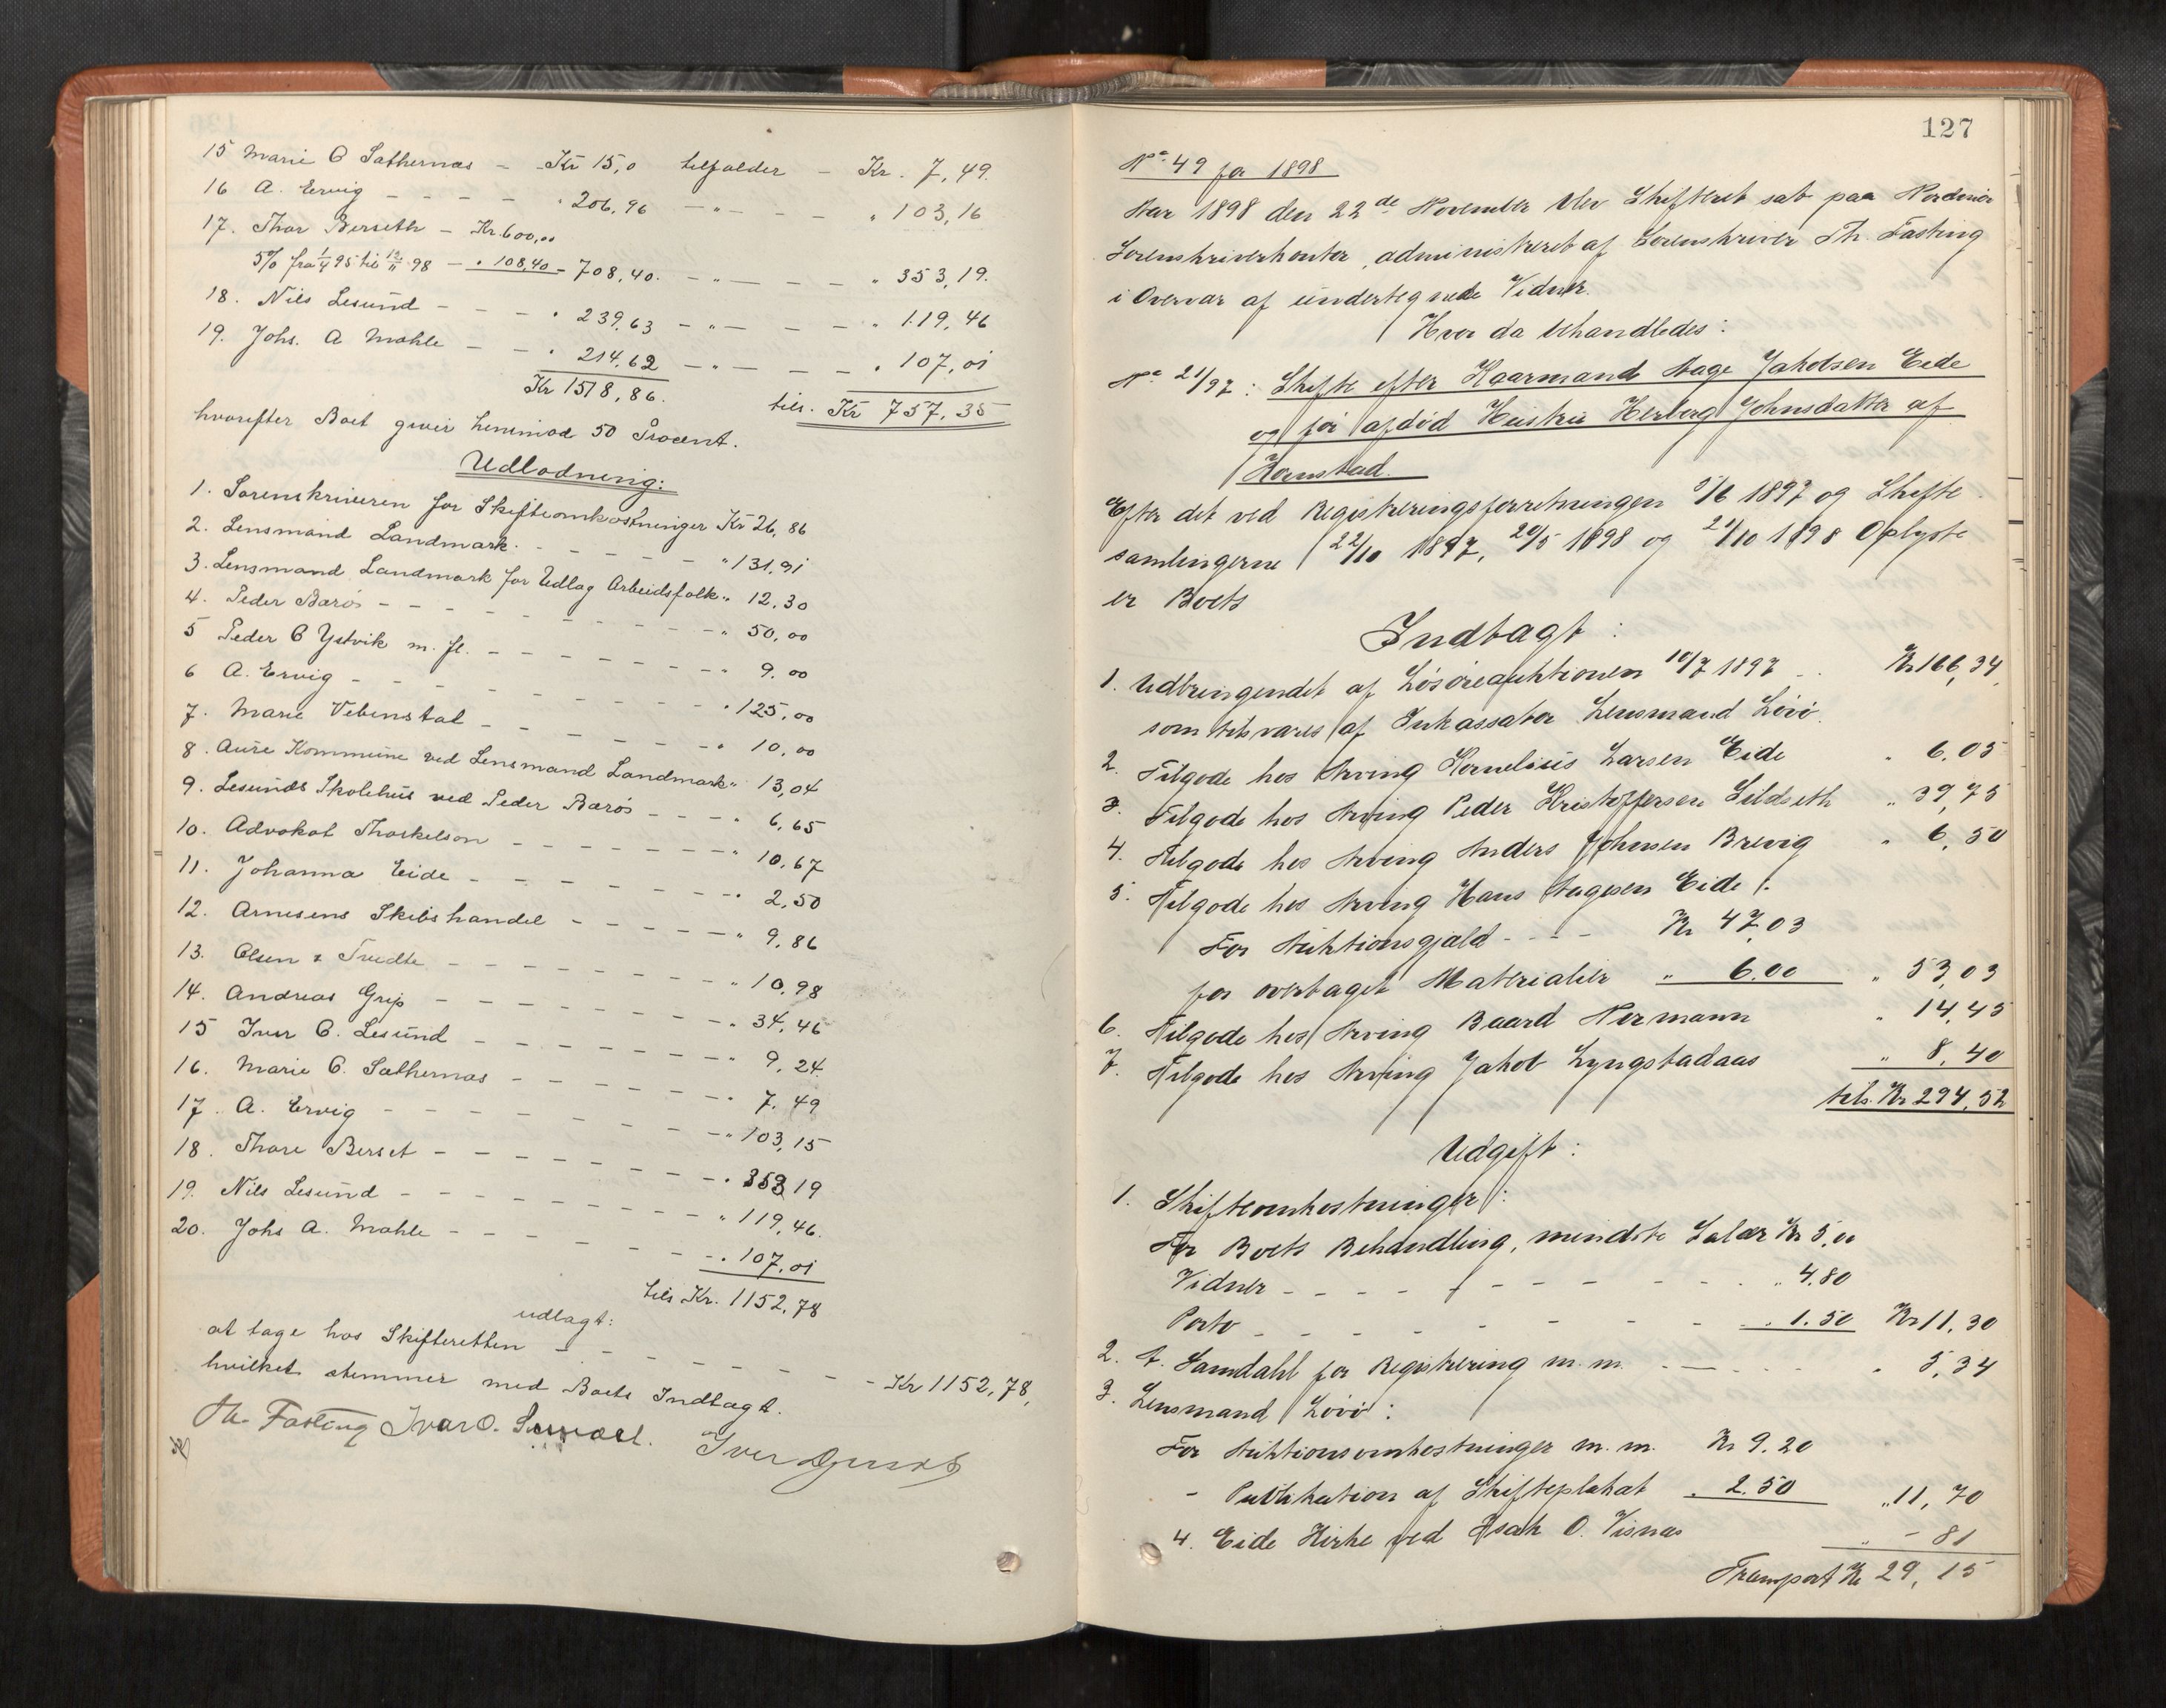 15 Marie O Sathernæs – Kr 15,0 tilfalder – Kr. 7,49.
16 A. Ervig – – – – " 206,96 –"– – – " 103,16
17. Thor Berseth – Kr. 600,00
5% fra 1/4 95 til 12/11 98 – " 108,40 – 708,40. –"– – – " 353,19.
18. Nils Lesund – – – " 239,63 –"– – – " 119,46
19. Johs. A Mohle – – " 214,62 –"– – – " 107,01
Kr 1518,86. tils. Kr 757,35
hvorefter Boet giver henimod 50 Procent.
Udlodning:
1. Sorenskriveren for Skifteomkostninger Kr 26,86
2. Lensmand Landmark. – – – – – " 131,91
3. Lensmand Landmark for Udlag Arbeidsfolk " 12,30
4. Peder Barøs – – – – – – – – " 50,00
5 Peder O Ystvik m. fl. – – – – – – " 9,00
6 A. Ervig – – – – – – – – " 125,00
7. Marie Vebenstad – – – – – – " 10,00
8. Aure Kommune ved Lensmand Landmark " 13,04
9. Lesunds Skolehus ved Peder Barøs – – – " 6,65
10. Advokat Thorkelson – – – – – – " 10,67
11. Johanna Eide – – – – – – – " 2,50
12. Arnesens Skibshandel – – – – – " 9,86
13. Olsen & Tredte – – – – – – – " 10,98
14. Andreas Grip – – – – – – – " 34,46
15 Iver O. Lesund – – – – – – – " 9,24
16. Marie O. Sathernæs – – – – – – " 7,49
17. A. Ervig – – – – – – – – " 103,15
18. Thore Berset – – – – – – – " 353,19
19. Nils Lesund – – – – – – – – " 119,46.
20. Johs A. Mohle – – – – – – – " 107,01
tils Kr. 1152,78
udlagt:
at tage hos Skifteretten – – – – – – – Kr 1152,78,
hvilket stemmer med Boets Indtægt.
Th. Fasting Ivar O.
Iver
127
No 49 for 1898
Aar 1898 den 22de November blev Skifteret sat paa Nordmør
Sorenskriverkontor, administreret af Sorenskriver Th. Fasting
i Overvær af undertegnede Vidner.
Hvor da behandledes:
No 21/97: Skifte efter Kaarmand Aage Jakobsen Eide
og før afdød Hustru Herborg Johnsdatter af
Honstad.
Efter det ved Registreringsforretningen 3/6 1897 og Skifte
samlingerne 22/10 1897, 20/5 1898 og 21/10 1898 Oplyste
er Boets
Indtægt:
1. Udbringendet af Løsøreauktionen 10/7 1897 .. Kr 166,34,
som tilsvares af Inkassator Lensmand Løvø.
2. Tilgode hos Arving Kornelius Larsen Eide " 6,05
3. Tilgode hos Arving Peder Kristoffersen Sildseth " 39,75
4. Tilgode hos Arving Anders Johnsen Brevig " 6,50
5. Tilgode hos Arving Hans Aagesen Eide:
For Auktionsgjæld - - - – Kr 47,03
for overtaget Materialier " 6.00 " 53,03
6. Tilgode hos Arving Baard Nermann " 14,45
7. Tilgode hos Arving Jakob Lyngstadaas " 8,40
tils. Kr 294,52
Udgift:
1. Skifteomkostninger:
For Boets Behandling, mindste Salær Kr 5,00
Vidner – – – – – – – – – – " 4.80
Porto – – – – – – – – – " 1.50 Kr 11,30
2. A. Samdahl for Registrering m. m. - – - - - " 5,34
3. Lensmand Løvø:
For Auktionsomkostninger m. m. Kr 9.20
– Publikation af Skifteplakat " 2.50 " 11,70
4. Eide Kirke ved Isak O. Visnæs " – 81
Transport Kr 29,15